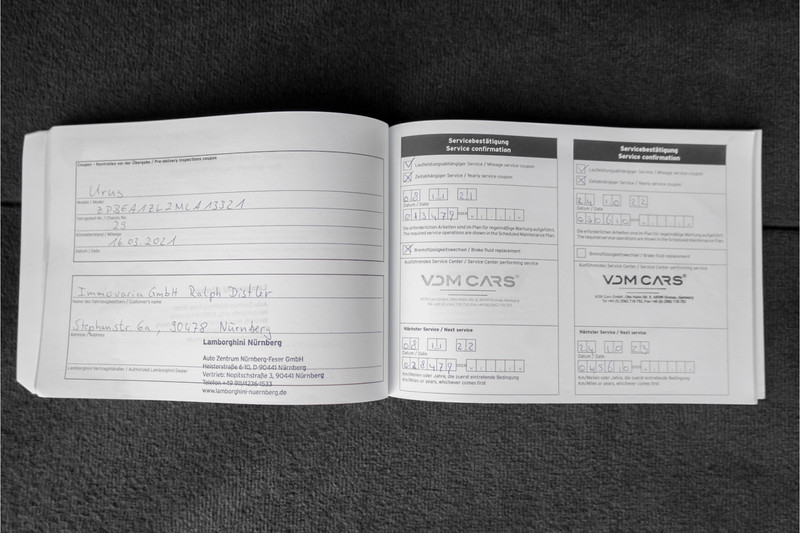 Coupon - Kontrollen vor der Übergabe / Pre-delivery inspections coupon
Urus
Modell / Model
ZPBEA1ZL2MLA13321
Fahrgestell Nr. / Chassis No.
29
Kilometerstand / Mileage
16.03.2021
Datum / Date
Immovaria GmbH Ralph Distler
Name des Fahrzeughalters / Customer's name
Stephanstr 6a, 90478 Nürnberg
Adresse / Address
Lamborghini Nürnberg
Auto Zentrum Nürnberg-Feser GmbH
Heisterstraße 6-10, D-90441 Nürnberg
Vertrieb: Nopitschstraße 3, 90441 Nürnberg
Lamborghini Vertragshändler / Authorized Lamborghini Dealer
Telefon +49 911/4236-1533
www.lamborghini-nuernberg.de
Servicebestätigung
Service confirmation
Laufleistungsabhängiger Service / Mileage service coupon
Zeitabhängiger Service / Yearly service coupon
08 11 21
Datum / Date
013479
Die erforderlichen Arbeiten sind im Plan für regelmäßige Wartung aufgeführt.
The required service operations are shown in the Scheduled Maintenance Plan.
Bremsflüssigkeitswechsel / Brake fluid replacement
Ausführendes Service Center / Service Center performing service
VDM CARS
Nächster Service / Next service
08 11 22
Datum / Date
028479
Km/Meilen oder Jahre, die zuerst eintretende Bedingung
Km/Miles or years, whichever comes first
Servicebestätigung
Service confirmation
Laufleistungsabhängiger Service / Mileage service coupon
Zeitabhängiger Service / Yearly service coupon
24 10 22
Datum / Date
030610
Die erforderlichen Arbeiten sind im Plan für regelmäßige Wartung aufgeführt.
The required service operations are shown in the Scheduled Maintenance Plan.
Bremsflüssigkeitswechsel / Brake fluid replacement
Ausführendes Service Center / Service Center performing service
VDM CARS
Nächster Service / Next service
24 10 23
Datum / Date
045610
Km/Meilen oder Jahre, die zuerst eintretende Bedingung
Km/Miles or years, whichever comes first